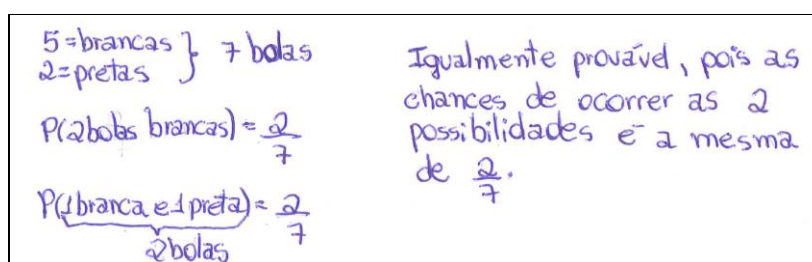 5=brancas } 7 bolas
2=pretas
P(2bolas brancas)= 2/7
P(1branca e 1 preta)= 2/7
2bolas
Igualmente provável, pois as
chances de ocorrer as 2
possibilidades é a mesma
de 2/7.